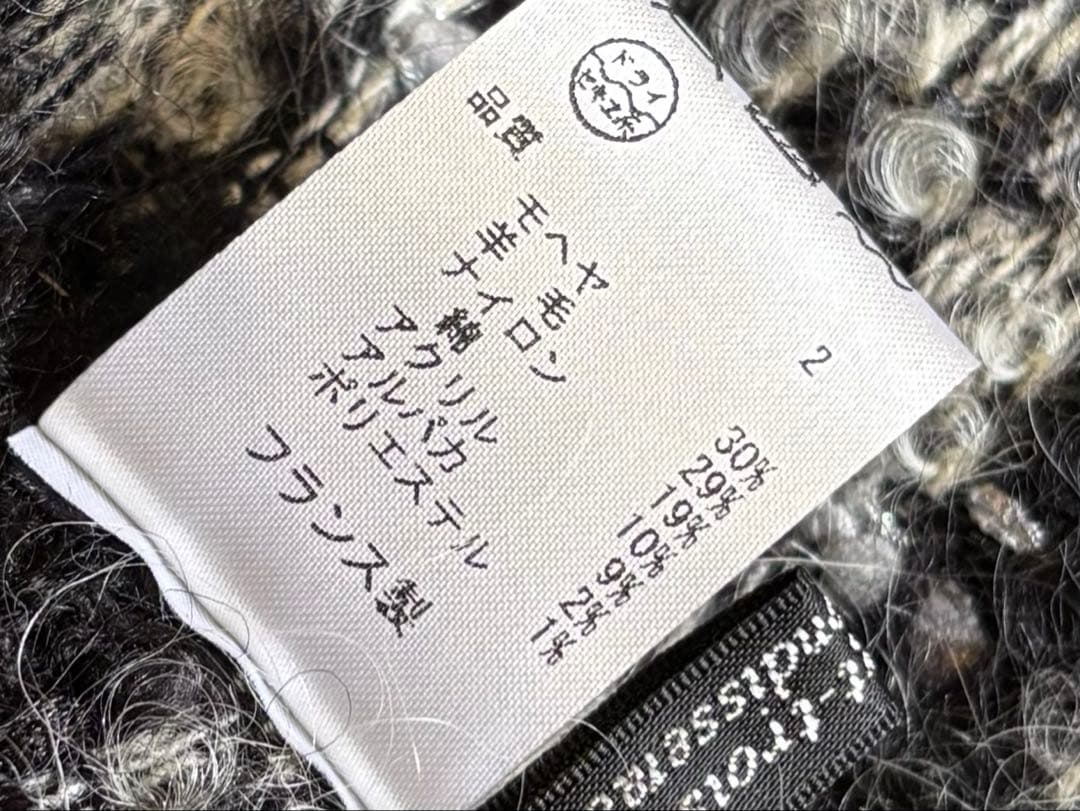 ドライ
セキユ系
品質
2
モヘヤ 30%
羊毛 29%
ナイロン 19%
綿 10%
アクリル 9%
アルパカ 2%
ポリエステル 1%
フランス製